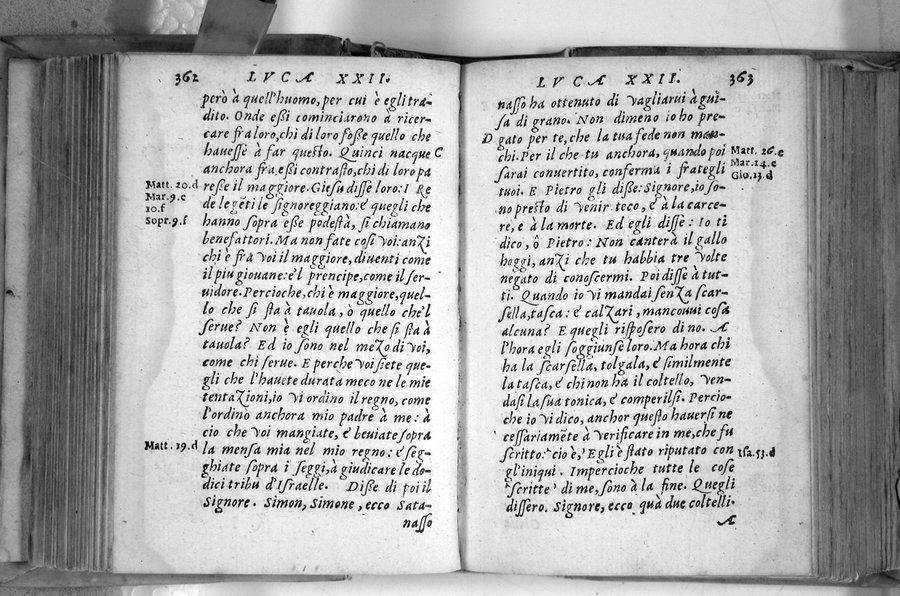 362 LVCÆ XXII.
però à quell'huomo, per cui è egli tra-
dito. Onde eßi cominciarono à ricer-
care fra loro, chi di loro foße quello che
hauesse à far questo. Quinci nacque C
anchora fra eßi contrasto, chi di loro pa
Matt. 20.d reße il maggiore. Giesu disse loro: I Re
Mar. 9.e de le gẽti le signoreggiano: e' quegli che
10.f hanno sopra eße podestà, si chiamano
Sopr. 9.f benefattori. Ma non fate cosi voi: anzi
chi è frà voi il maggiore, diuenti come
il piu giouane: e'l prencipe, come il ser-
uidore. Percioche, chi è maggiore, quel-
lo che si sta à tauola, ò quello che'l
serue? Non è egli quello che si sta à
tauola? Ed io sono nel mezo di voi,
come chi serue. E perche voi siete que-
gli che l'hauete durata meco ne le mie
tentazioni, io vi ordino il regno, come
l'ordinò anchora mio padre à me: à
cio che voi mangiate, e' beuiate sopra
Matt. 19.d la mensa mia nel mio regno: e' seg-
ghiate sopra i seggi, à giudicare le do-
dici tribu d'Israelle. Diße di poi il
Signore. Simon, Simone, ecco Sata-
nasso
LVCÆ XXII. 363
nasso ha ottenuto di vagliarui à gui-
sa di grano. Non dimeno io ho pre-
D gato per te, che la tua fede non man-
chi. Per il che tu anchora, quando poi Matt. 26.e
sarai conuertito, conferma i frategli Mar. 14.e
tuoi. E Pietro gli diße: Signore, io so- Gio. 13.d
no presto di venir teco, e' à la carce-
re, e à la morte. Ed egli disse: Io ti
dico, ô Pietro: Non canterà il gallo
hoggi, anzi che tu habbia tre volte
negato di conoscermi. Poi disse à tut-
ti. Quando io vi mandai senza scar-
sella, tasca: e' calzari, mancouui cosa
alcuna? E quegli risposero di no. A
l'hora egli soggiunse loro. Ma hora chi
ha la scarsella, tolgala, e' similmente
la tasca, e' chi non ha il coltello, ven-
dasi la sua tonica, e' comperilsi. Percio-
che io vi dico, anchor questo hauersi ne
cessariamẽte à verificare in me, che fu
scritto: cio è, Egli è stato riputato con Isa. 53.d
gl'iniqui. Impercioche tutte le cose
scritte di me, sono à la fine. Quegli
dissero. Signore, ecco quà due coltelli.
A